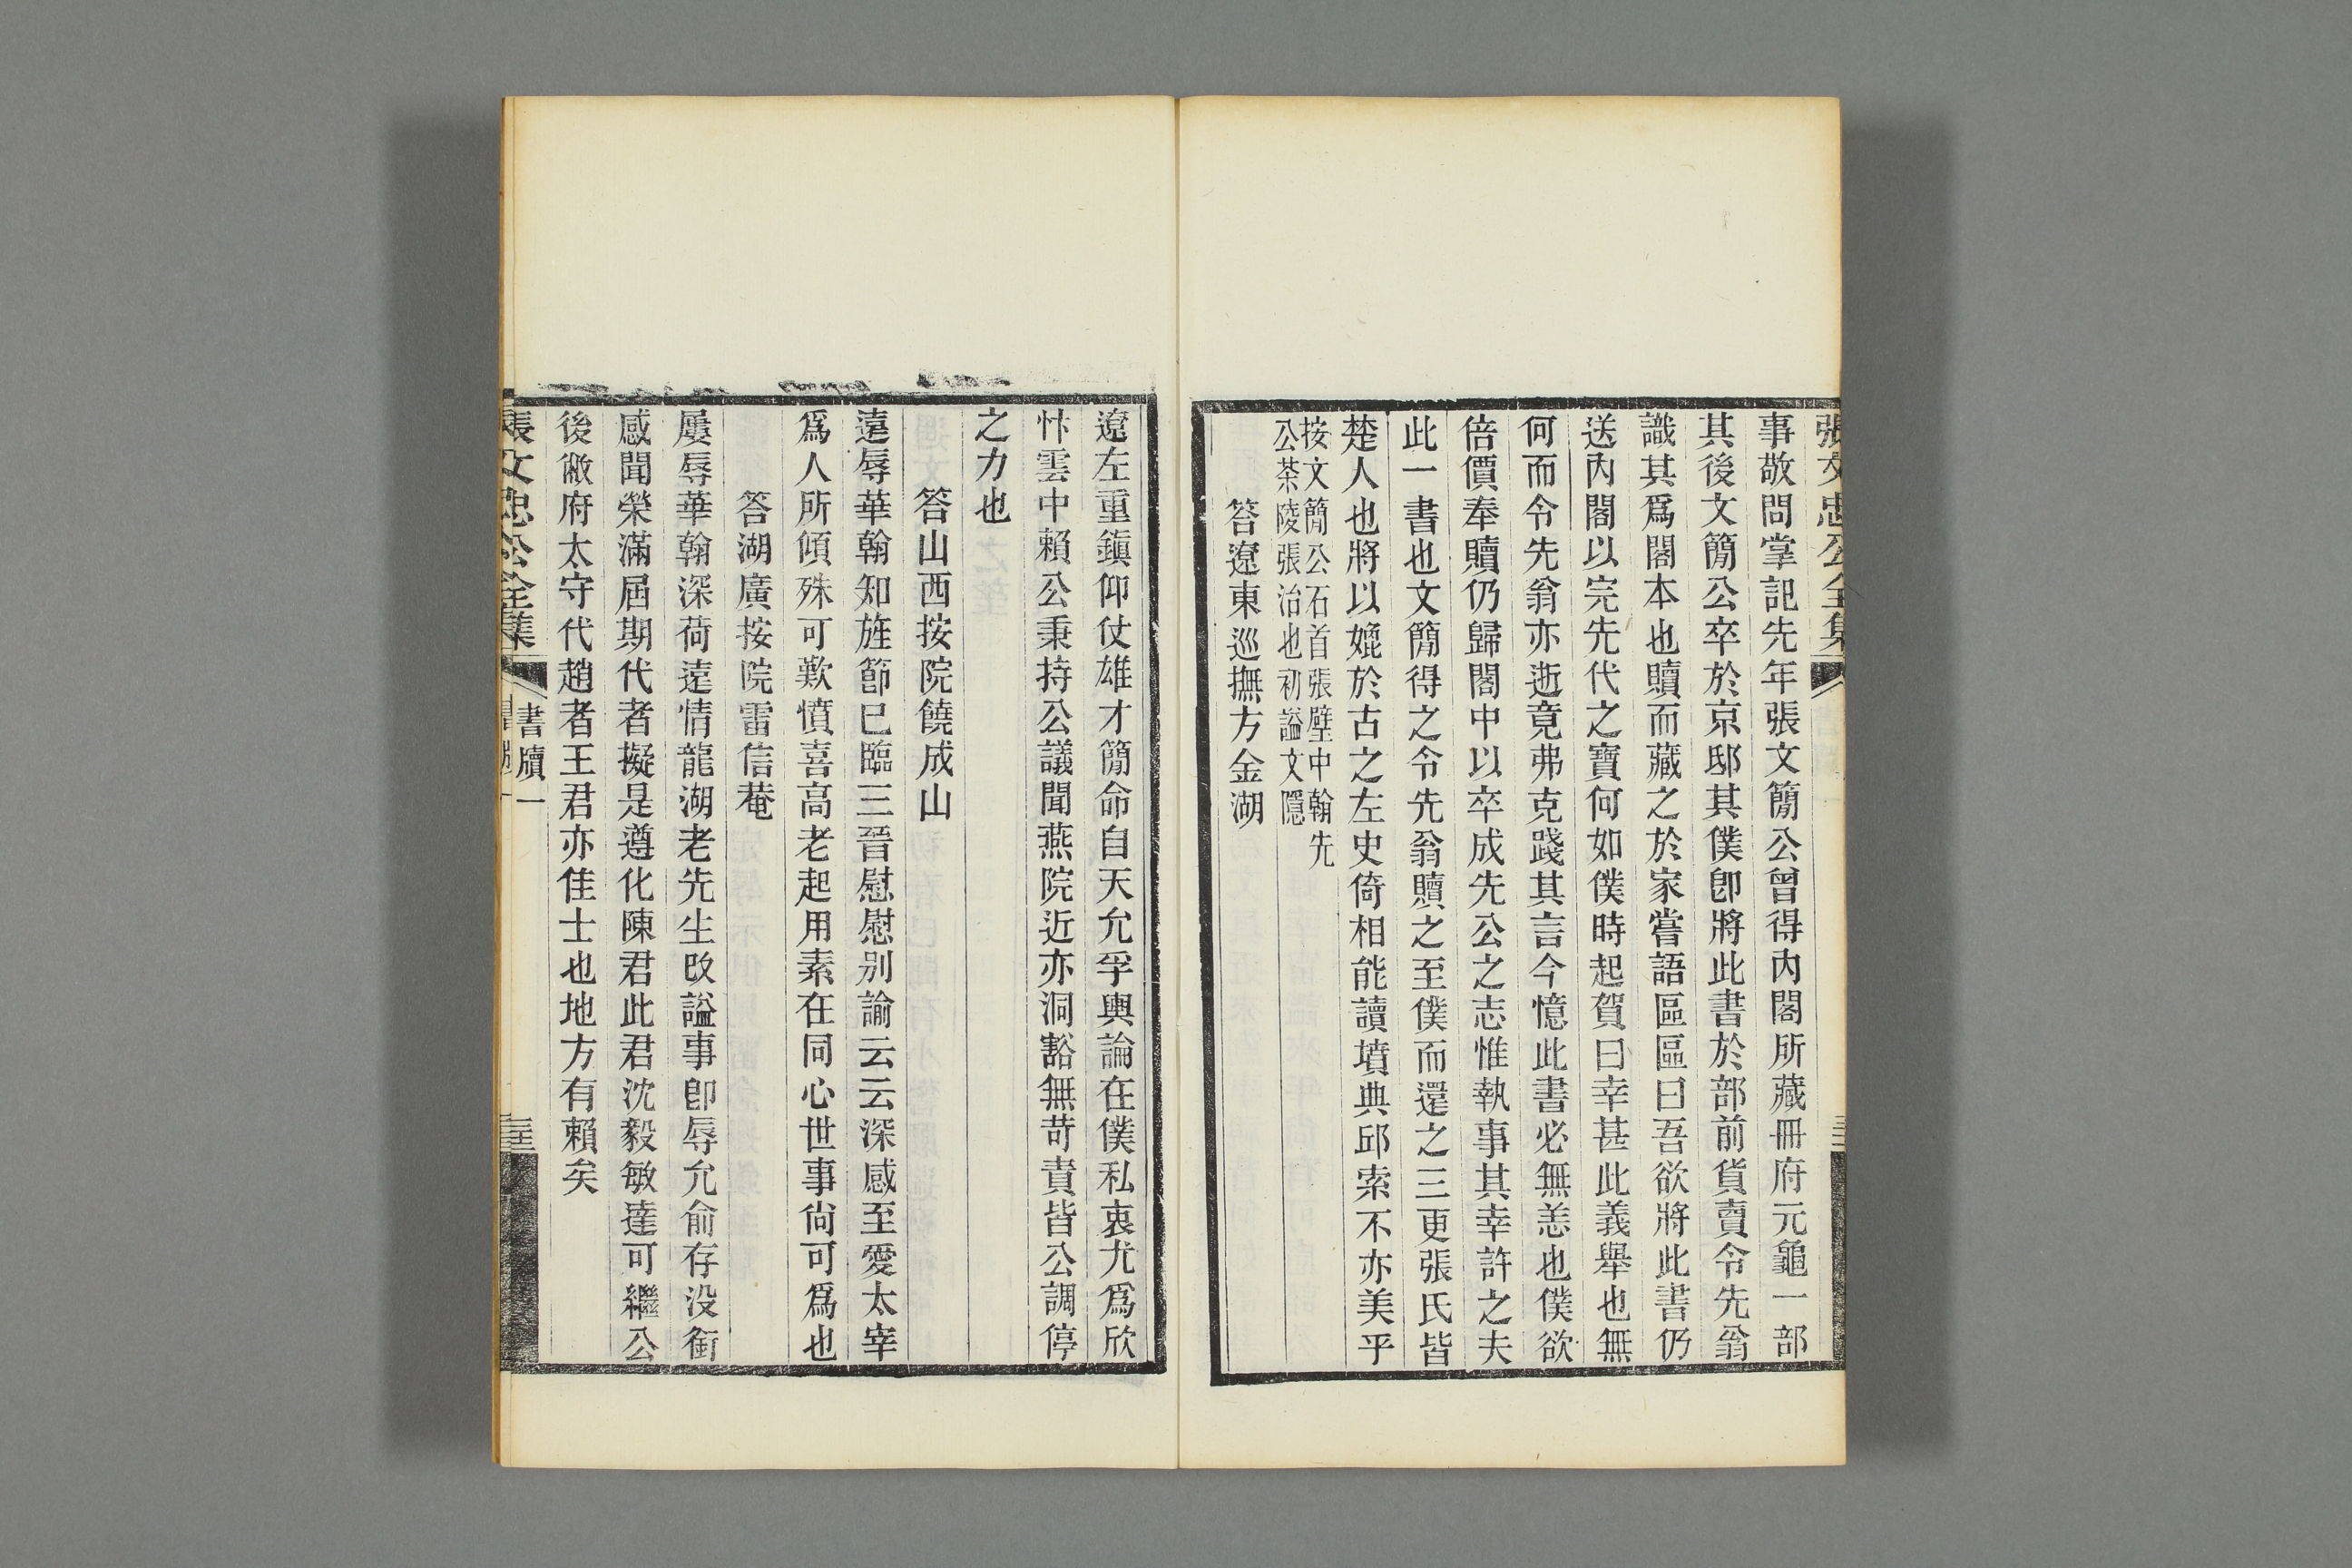 張文忠公全集
事敬問掌記先年張文簡公曾得內閣所藏冊府元龜一部
其後文簡公卒於京邸其僕卽將此書於部前貨賣令先翁
識其爲閣本也贖而藏之於家嘗語區區曰吾欲將此書仍
送內閣以完先代之寶何如僕時起賀曰幸甚此義舉也無
何而令先翁亦逝竟弗克踐其言今憶此書必無恙也僕欲
倍價奉贖仍歸閣中以卒成先公之志惟執事其幸許之夫
此一書也文簡得之令先翁贖之至僕而還之三更張氏皆
楚人也將以媲於古之左史倚相能讀墳典邱索不亦美乎
按文簡公石首張壁中翰先
公茶陵張治也初謚文隱
答遼東巡撫方金湖
遼左重鎭仰仗雄才簡命自天允孚輿論在僕私衷尤爲欣
忭雲中賴公秉持公議聞燕院近亦洞豁無苛責皆公調停
之力也
答山西按院饒成山
遠辱華翰知旌節已臨三晉慰慰别諭云云深感至愛太宰
爲人所傾殊可歎憤喜高老起用素在同心世事尙可爲也
答湖廣按院雷信菴
屢辱華翰深荷遠情龍湖老先生改謚事卽辱允俞存没銜
感聞榮滿屆期代者擬是遵化陳君此君沈毅敏達可繼公
後敝府太守代趙者王君亦佳士也地方有賴矣
張文忠公全集
書牘一